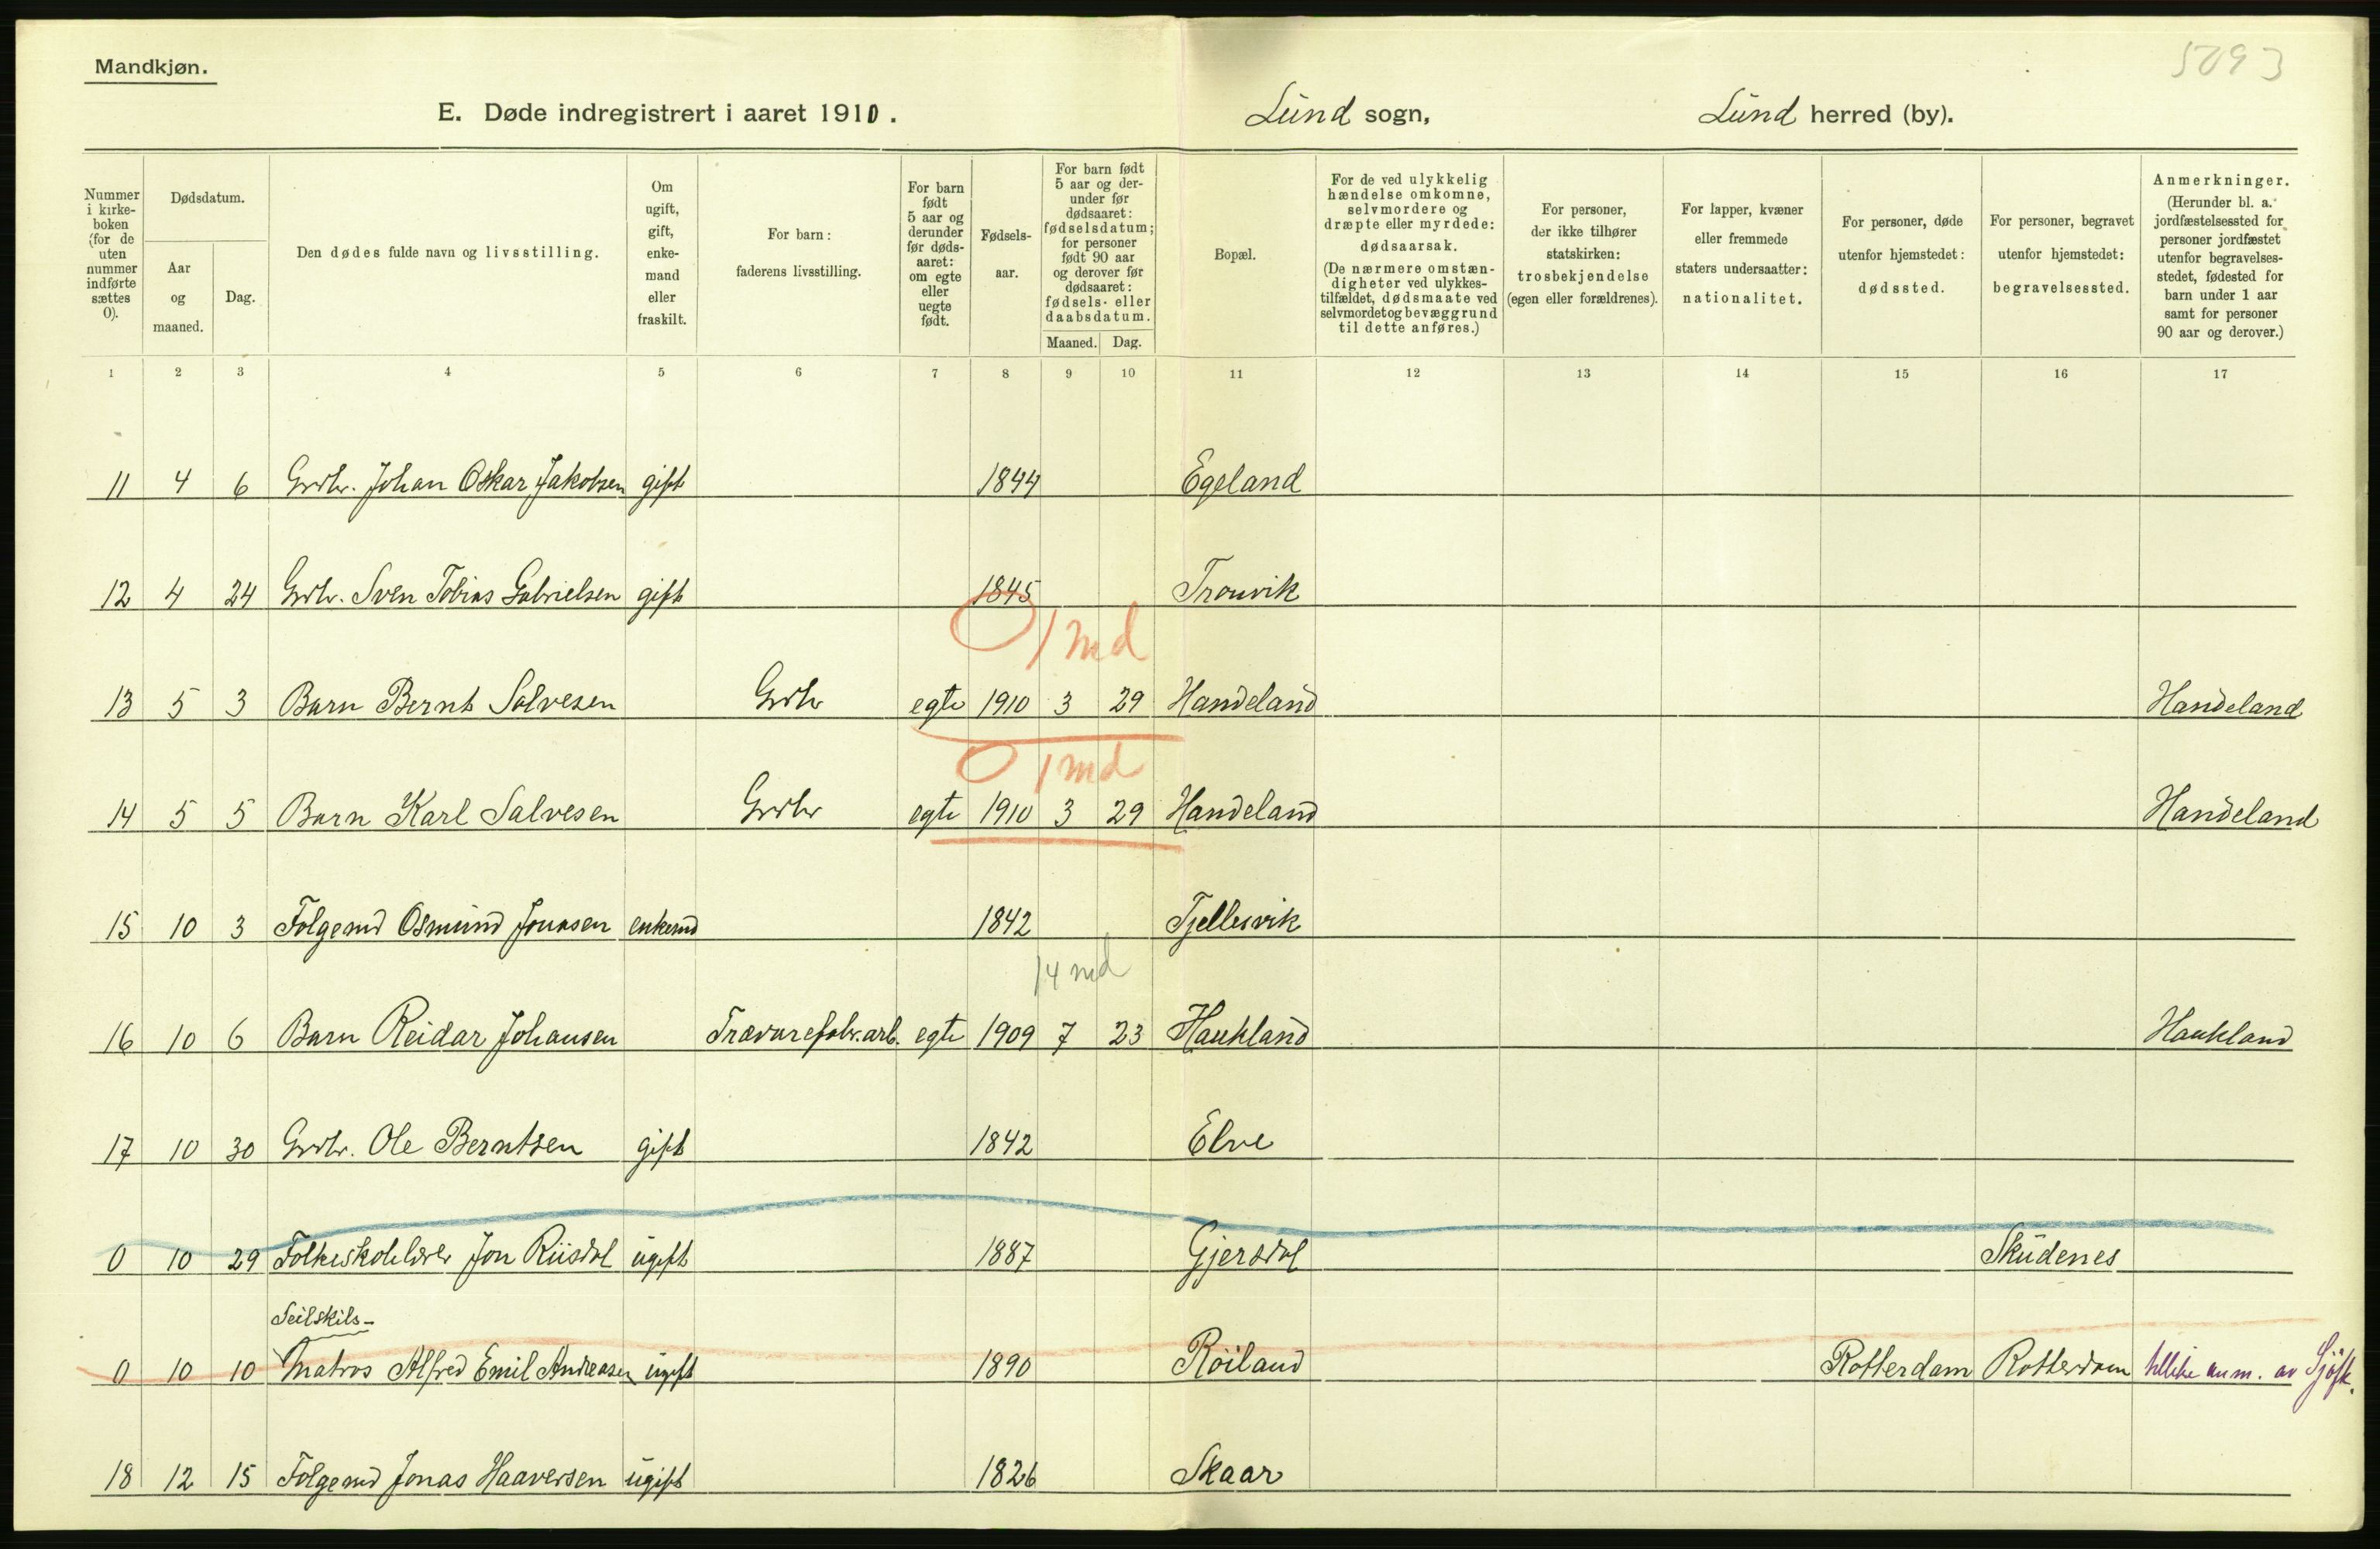 5093
Mandkjøn.
E. Døde indregistrert i aaret 1910. Lund sogn, Lund herred (by).
Nummer i kirke-boken (for de uten nummer indførte sættes 0).
Dødsdatum.
Aar og maaned.
Dag.
Den dødes fulde navn og livsstilling.
Om ugift, gift, enke-mand eller fraskilt.
For barn: faderens livsstilling.
For barn født 5 aar og derunder før døds-aaret: om egte eller uegte født.
Fødsels-aar.
For barn født 5 aar og der-under før dødsaaret: fødselsdatum; for personer født 90 aar og derover før dødsaaret: fødsels- eller daabsdatum.
Maaned. Dag.
Bopæl.
For de ved ulykkelig hændelse omkomne, selvmordere og dræpte eller myrdede: dødsaarsak. (De nærmere omstæn-digheter ved ulykkes-tilfældet, dødsmaate ved selvmordet og bevæggrund til dette anføres.)
For personer, der ikke tilhører statskirken: trosbekjendelse (egen eller forældrenes).
For lapper, kvæner eller fremmede staters undersaatter: nationalitet.
For personer, døde utenfor hjemstedet: dødssted.
For personer, begravet utenfor hjemstedet: begravelsessted.
Anmerkninger. (Herunder bl. a. jordfæstelsessted for personer jordfæstet utenfor begravelses-stedet, fødested for barn under 1 aar samt for personer 90 aar og derover.)
1 2 3 4 5 6 7 8 9 10 11 12 13 14 15 16 17
11 4 6 Grdbr. Johan Oskar Jakobsen gift 1844 Egeland
12 4 24 Grdbr. Sven Tobias Gabrielsen gift 1845 Tronvik
0 1 md
13 5 3 Barn Bernt Salvesen Grdbr egte 1910 3 29 Handeland Handeland
0 1 md
14 5 5 Barn Karl Salvesen Grdbr egte 1910 3 29 Handeland Handeland
15 10 3 Folgemd Osmund Jonasen enkemd 1842 Tjellesvik
14 md
16 10 6 Barn Reidar Johansen Trævarefabr.arb. egte 1909 7 23 Haukland Haukland
17 10 30 Grdbr. Ole Berntsen gift 1842 Elve
0 10 29 Folkeskolelærer Jon Riisdal ugift 1887 Gjersdal Skudenes
Seilskils-
0 10 10 Matros Alfred Emil Andreasen ugift 1890 Røiland Rotterdam Rotterdam tillike anm. av Sjøfk.
18 12 15 Folgemd Jonas Haaversen ugift 1826 Skaar